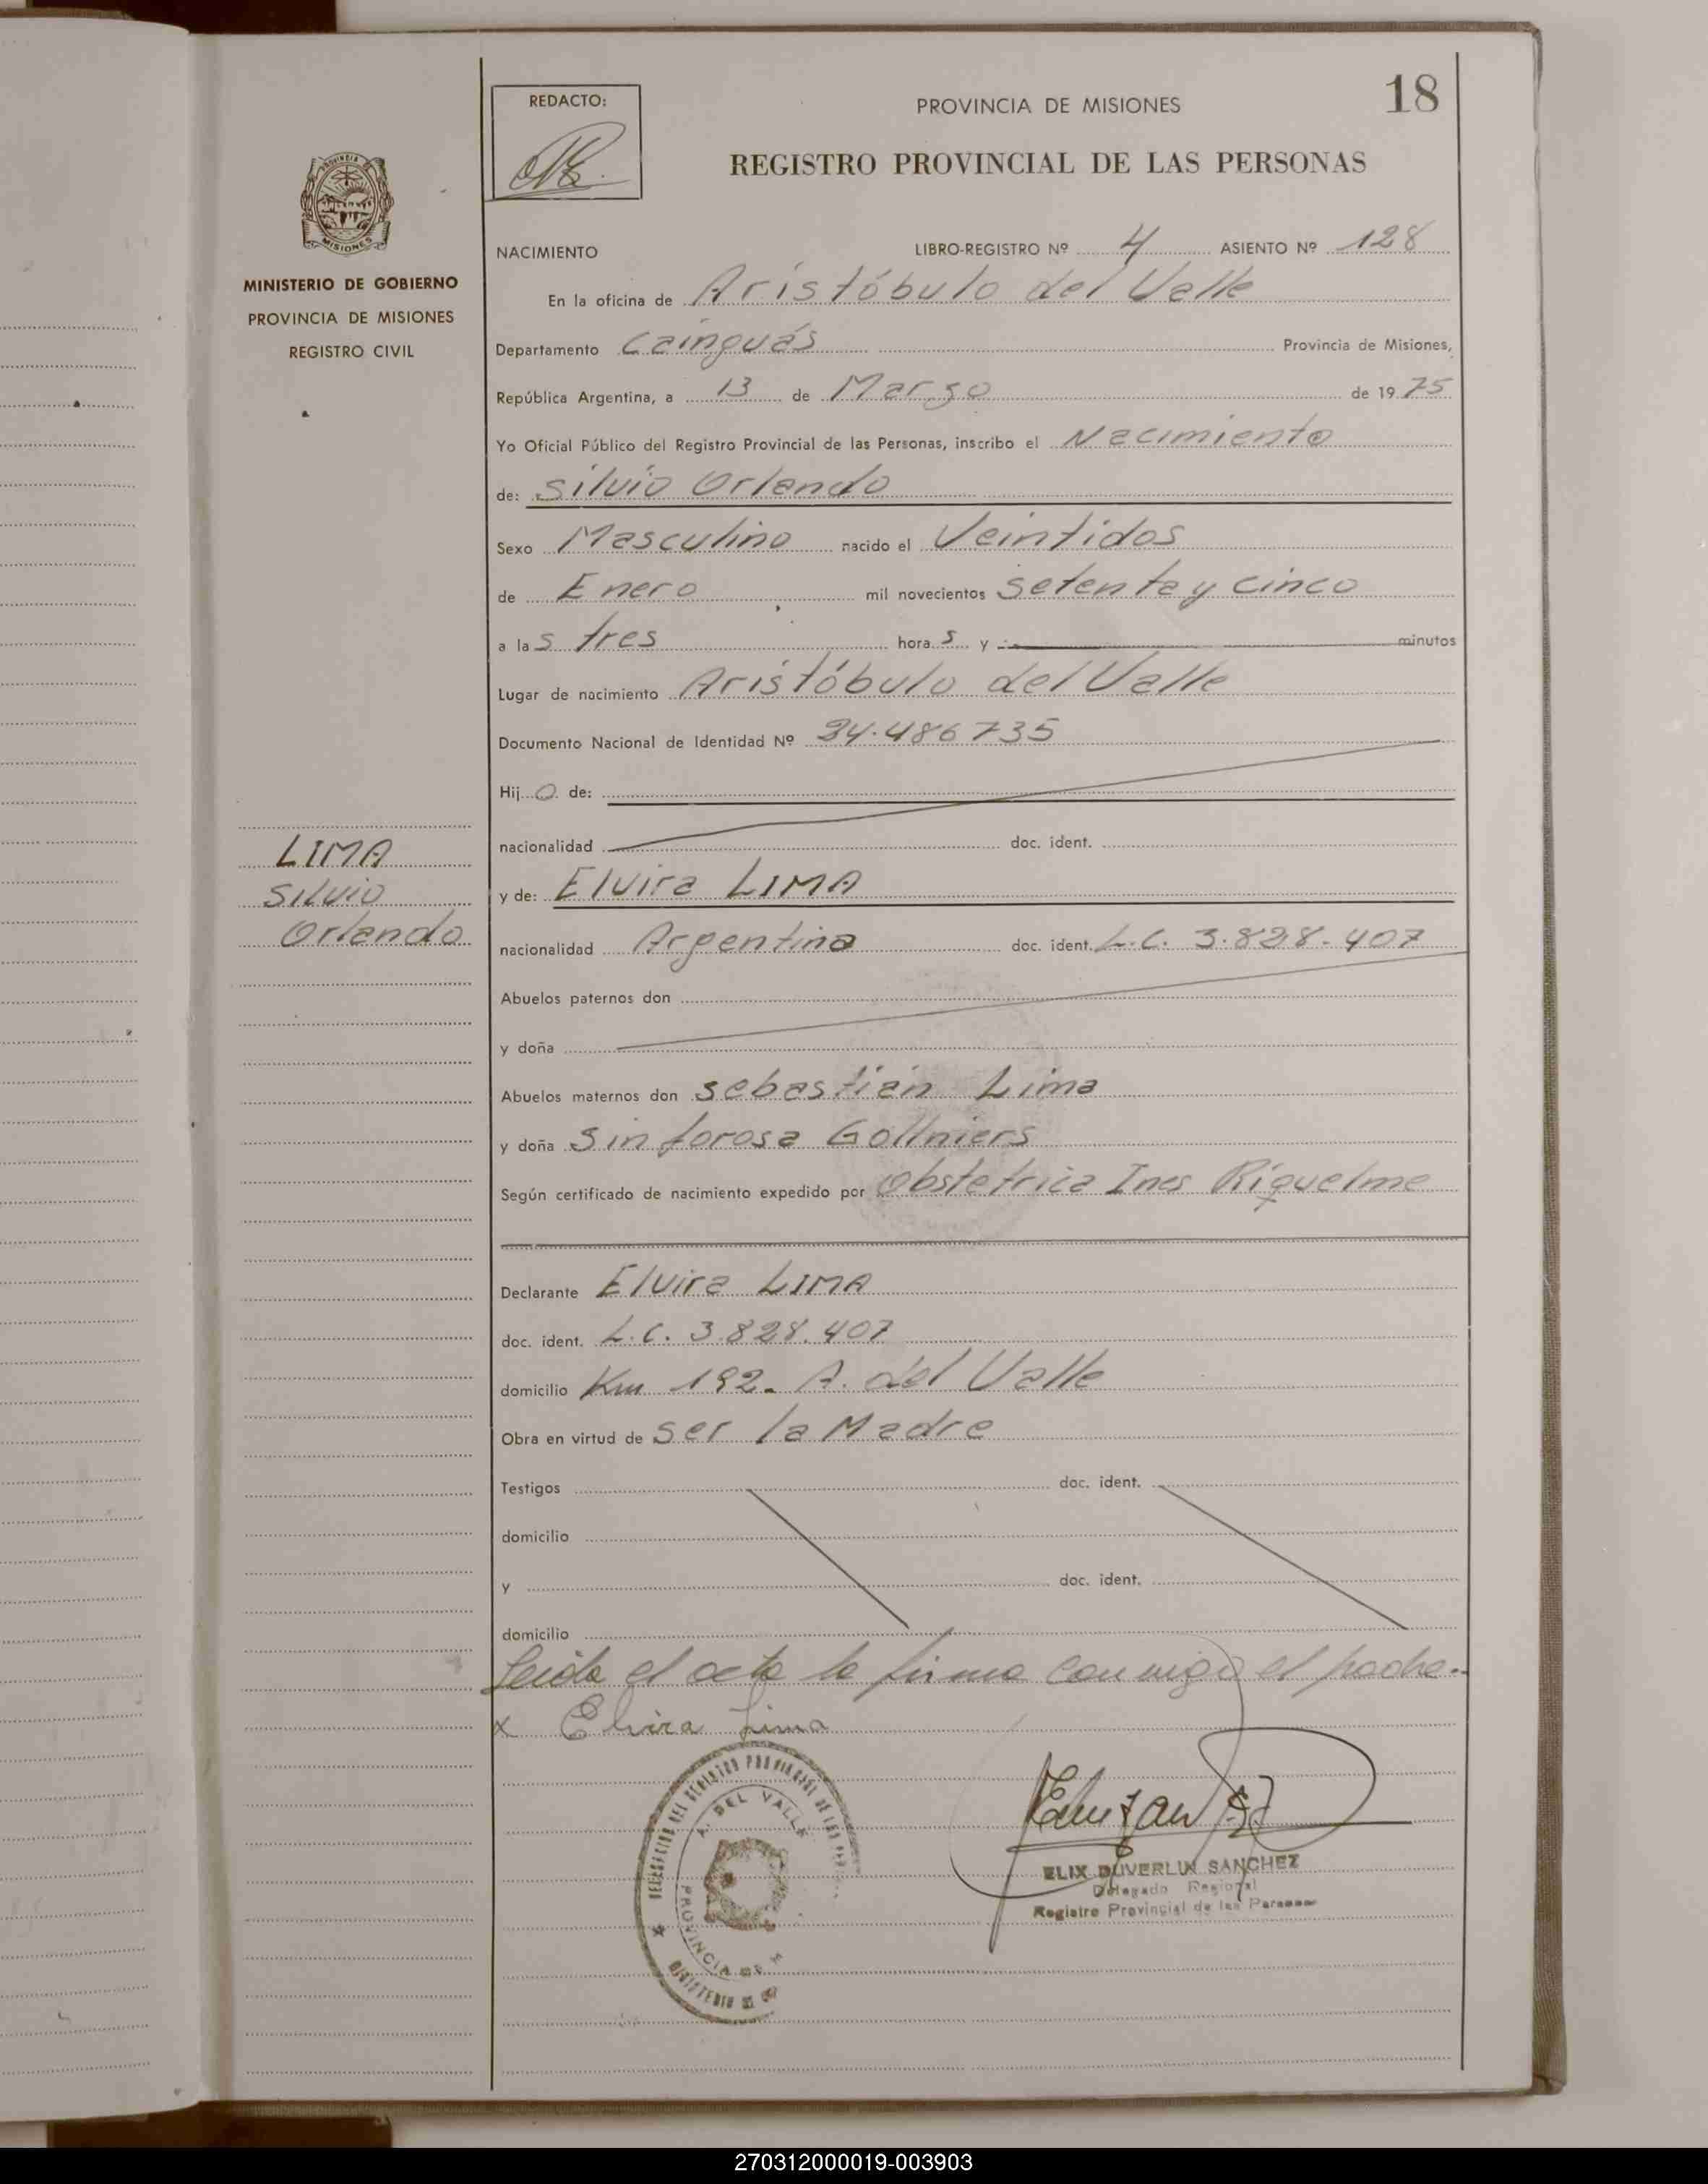 18
REDACTO:
PROVINCIA DE MISIONES
REGISTRO PROVINCIAL DE LAS PERSONAS
PROVINCIA
MISIONES
MINISTERIO DE GOBIERNO
PROVINCIA DE MISIONES
REGISTRO CIVIL
NACIMIENTO LIBRO-REGISTRO Nº 4 ASIENTO Nº 128
En la oficina de Aristóbulo del Valle
Departamento Cainguás Provincia de Misiones,
República Argentina, a 13 de Marzo de 19 75
Yo Oficial Público del Registro Provincial de las Personas, inscribo el Nacimiento
de: Silvio Orlando
Sexo Masculino nacido el Veintidos
de Enero mil novecientos setenta y cinco
a las tres horas y minutos
Lugar de nacimiento Aristóbulo del Valle
Documento Nacional de Identidad Nº 24.486735
Hijo de:
nacionalidad doc. ident.
LIMA
Silvio
Orlando
y de: Elvira LIMA
nacionalidad Argentina doc. ident. L.C. 3.828.407
Abuelos paternos don
y doña
Abuelos maternos don Sebastián Lima
y doña Sinforosa Gollniers
Según certificado de nacimiento expedido por Obstetrica Ines Riquelme
Declarante Elvira LIMA
doc. ident. L.C. 3.828.407
domicilio Km 192. A. del Valle
Obra en virtud de ser la Madre
Testigos doc. ident.
domicilio
y doc. ident.
domicilio
Leida el acta la firma conmigo el
x Elvira Lima
DELEGACION DEL REGISTRO PROVINCIAL DE LAS PER
A. DEL VALLE
PROVINCIA DE
MINISTERIO DE
ELIX DUVERLIN SANCHEZ
Delegado Regional
Registro Provincial de las Personas
270312000019-003903